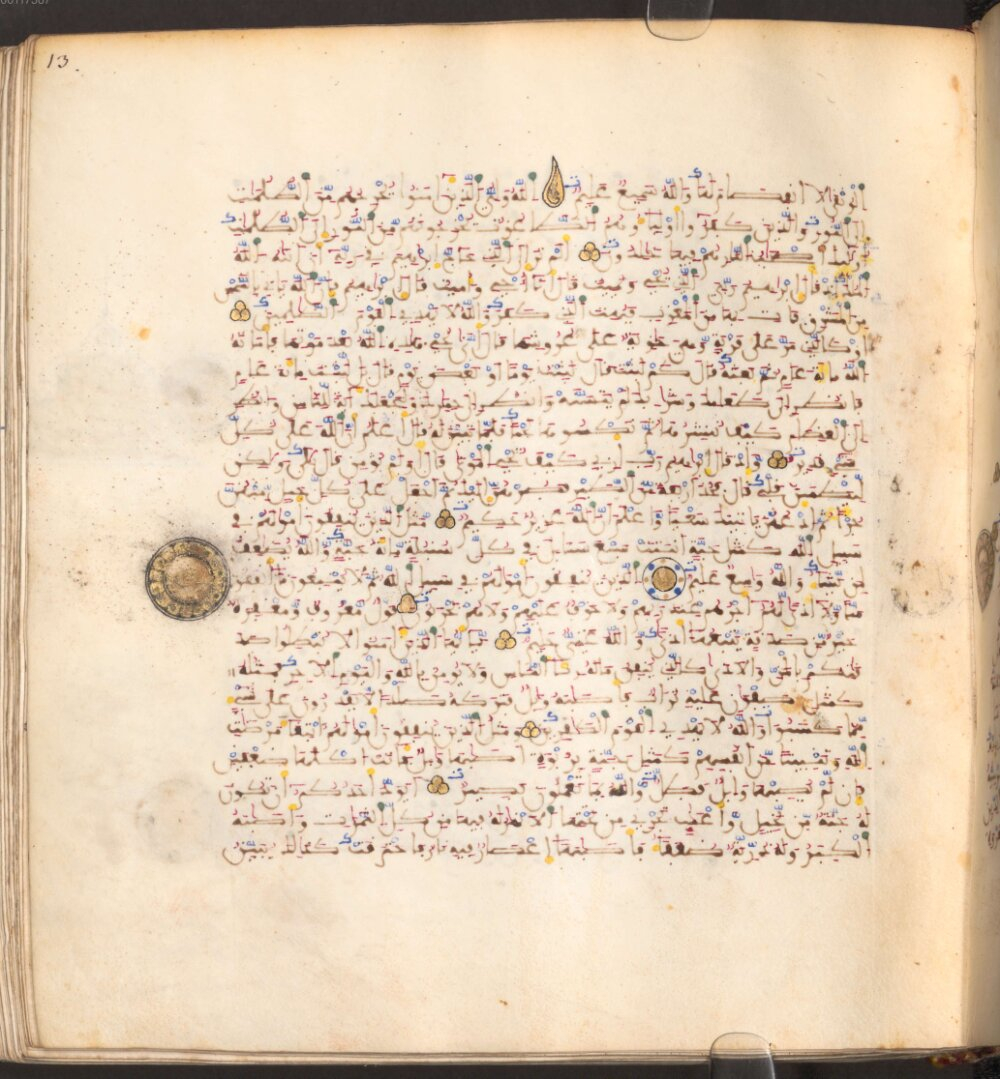 13.
الوثقى لا انفصام لها والله سميع عليم الله ولي الذين امنوا يخرجهم من الظلمت
الى النور والذين كفروا اولياوهم الطغوت يخرجونهم من النور الى الظلمت
اوليك اصحب النار هم فيها خلدون الم تر الى الذي حاج ابرهيم في ربه ان اتيه الله
الملك اذ قال ابرهيم ربي الذي يحي ويميت قال انا احي واميت قال ابرهيم فان الله ياتي بالشمس
من المشرق فات بها من المغرب فبهت الذي كفر والله لا يهدي القوم الظلمين
او كالذي مر على قرية وهي خاوية على عروشها قال انى يحي هذه الله بعد موتها فاماته
الله ماية عام ثم بعثه قال كم لبثت قال لبثت يوما او بعض يوم قال بل لبثت ماية عام
فانظر الى طعامك وشرابك لم يتسنه وانظر الى حمارك ولنجعلك اية للناس وانظر
الى العظام كيف ننشرها ثم نكسوها لحما فلما تبين له قال اعلم ان الله على كل
شيء قدير واذ قال ابرهيم رب ارني كيف تحي الموتى قال اولم تومن قال بلى ولكن
ليطمين قلبي قال فخذ اربعة من الطير فصرهن اليك ثم اجعل على كل جبل منهن
جزءا ثم ادعهن ياتينك سعيا واعلم ان الله عزيز حكيم مثل الذين ينفقون امولهم في
سبيل الله كمثل حبة انبتت سبع سنابل في كل سنبلة ماية حبة والله يضعف
لمن يشاء والله وسع عليم الذين ينفقون امولهم في سبيل الله ثم لا يتبعون ما انفقوا
منا ولا اذى لهم اجرهم عند ربهم ولا خوف عليهم ولا هم يحزنون قول معروف ومغفرة
خير من صدقة يتبعها اذى والله غني حليم يايها الذين امنوا لا تبطلوا صد
قتكم بالمن والاذى كالذي ينفق ماله رياء الناس ولا يومن بالله واليوم الاخر فمثله
كمثل صفوان عليه تراب فاصابه وابل فتركه صلدا لا يقدرون على شيء
مما كسبوا والله لا يهدي القوم الكفرين ومثل الذين ينفقون امولهم ابتغاء مرضات
الله وتثبيتا من انفسهم كمثل جنة بربوة اصابها وابل فاتت اكلها ضعفين
فان لم يصبها وابل فطل والله بما تعملون بصير ايود احدكم ان تكون
له جنة من نخيل واعنب تجري من تحتها الانهار له فيها من كل الثمرات واصابه
الكبر وله ذرية ضعفاء فاصابها اعصار فيه نار فاحترقت كذلك يبين